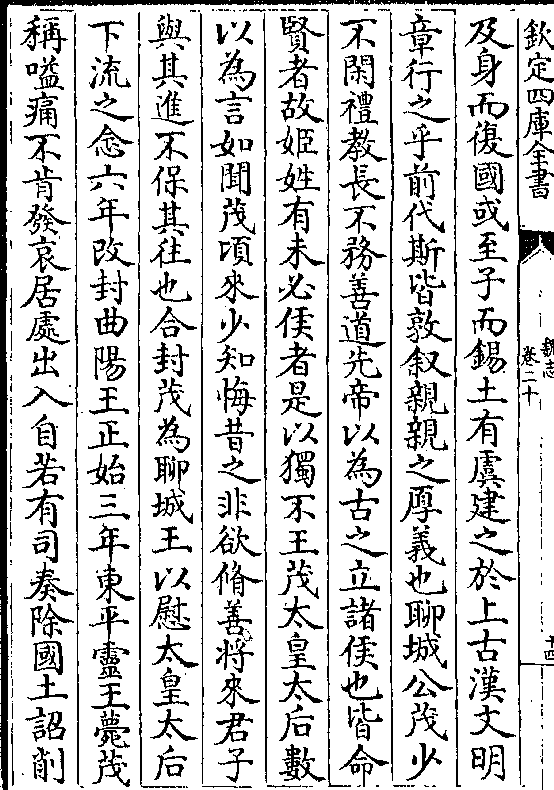 欽定四庫全書
魏志
卷二十
十四
及身而復國或至子而錫土有虞建之於上古漢文明
章行之乎前代斯皆敦叙親親之厚義也聊城公茂少
不閑禮教長不務善道先帝以為古之立諸侯也皆命
賢者故姬姓有未必侯者是以獨不王茂太皇太后數
以為言如聞茂頃來少知悔昔之非欲脩善將來君子
與其進不保其往也合封茂為聊城王以慰太皇太后
下流之念六年改封曲陽王正始三年東平靈王薨茂
稱嗌痛不肯發哀居處出入自若有司奏除國土詔削